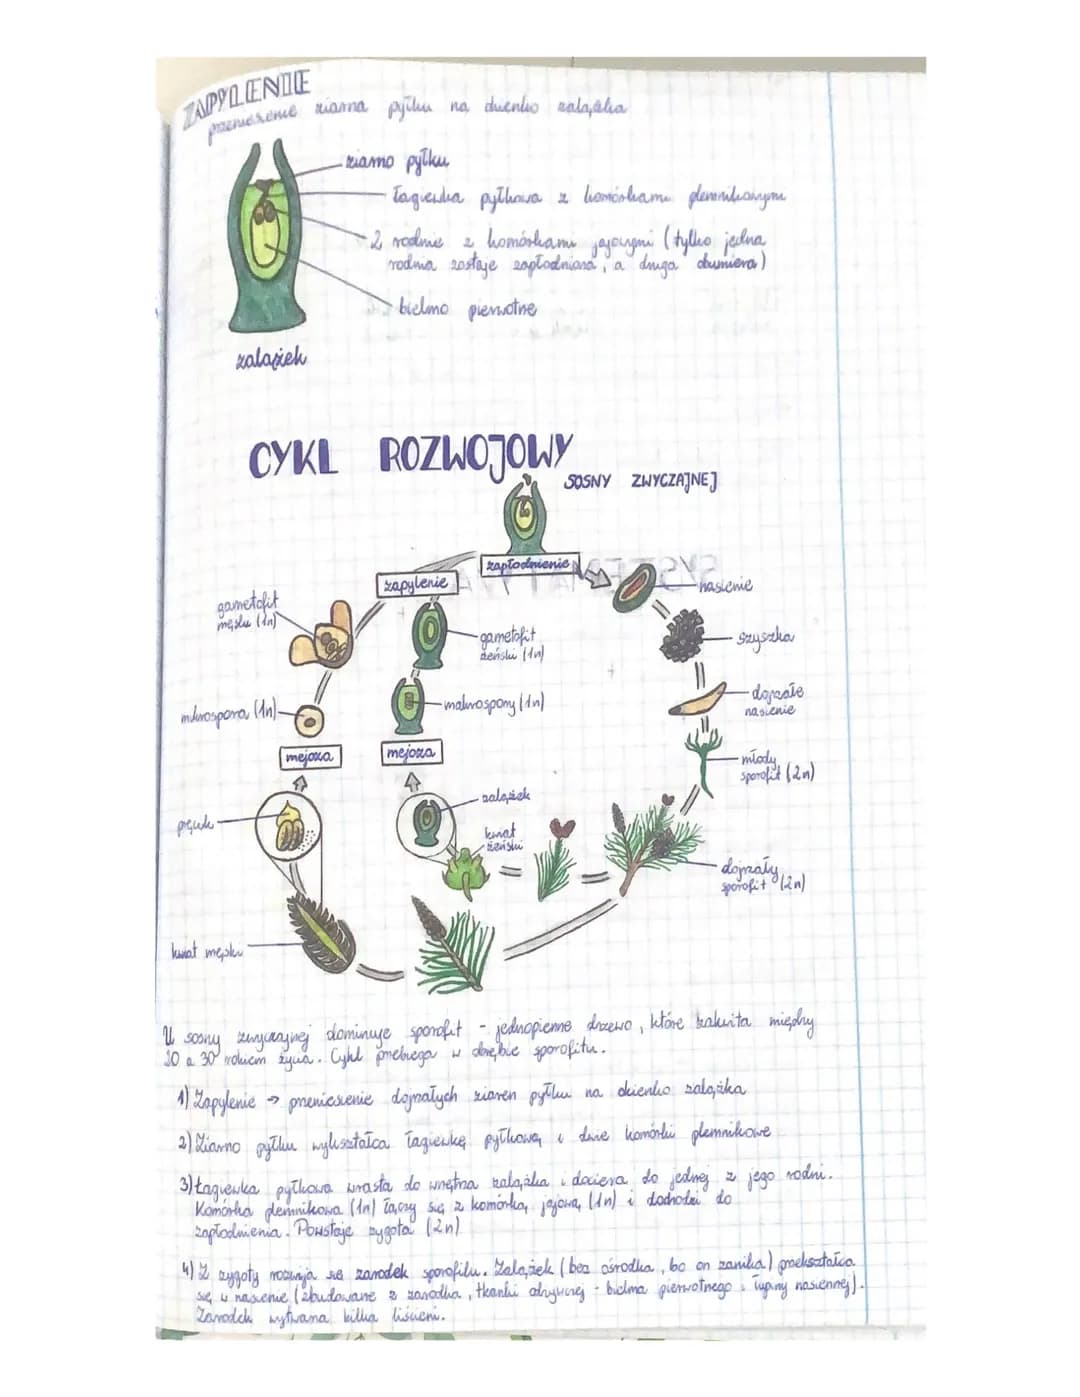 ZAPYLENIE
przeniesienie ziarna pyłku na okienko zalążka
ziarno pyłku
łagiewka pyłkowa z komórkami plemnikowymi
2 rodnie z komórkami jajowymi (tylko jedna
rodnia zostaje zapłodniona, a druga obumiera)
bielmo pierwotne
zalążek
CYKL ROZWOJOWY
SOSNY ZWYCZAJNEJ
zapłodnienie
zapylenie
nasienie
gametofit
męski (1n)
gametofit
żeński (1n)
szyszka
mikrospora (1n)
makrospory (1n)
dojrzałe
nasienie
mejoza
mejoza
młody
sporofit (2n)
zalążek
pręcik
kwiat
żeński
dojrzały
sporofit (2n)
kwiat męski
U sosny zwyczajnej dominuje sporofit - jednopienne drzewo, które zakwita między
10 a 30 rokiem życia. Cykl przebiega w obrębie sporofitu.
1) Zapylenie → przeniesienie dojrzałych ziaren pyłku na okienko zalążka
2) Ziarno pyłku wykształca łagiewkę pyłkową i dwie komórki plemnikowe
3) Łagiewka pyłkowa wrasta do wnętrza zalążka i dociera do jednej z jego rodni.
Komórka plemnikowa (1n) łączy się z komórką jajową (1n) i dochodzi do
zapłodnienia. Powstaje zygota (2n)
4) Z zygoty rozwija się zarodek sporofitu. Zalążek (bez ośrodka, bo on zanika) przekształca
się w nasienie (zbudowane z zarodka, tkanki odżywczej - bielma pierwotnego i łupiny nasiennej).
Zarodek wytwarza kilka liścieni.